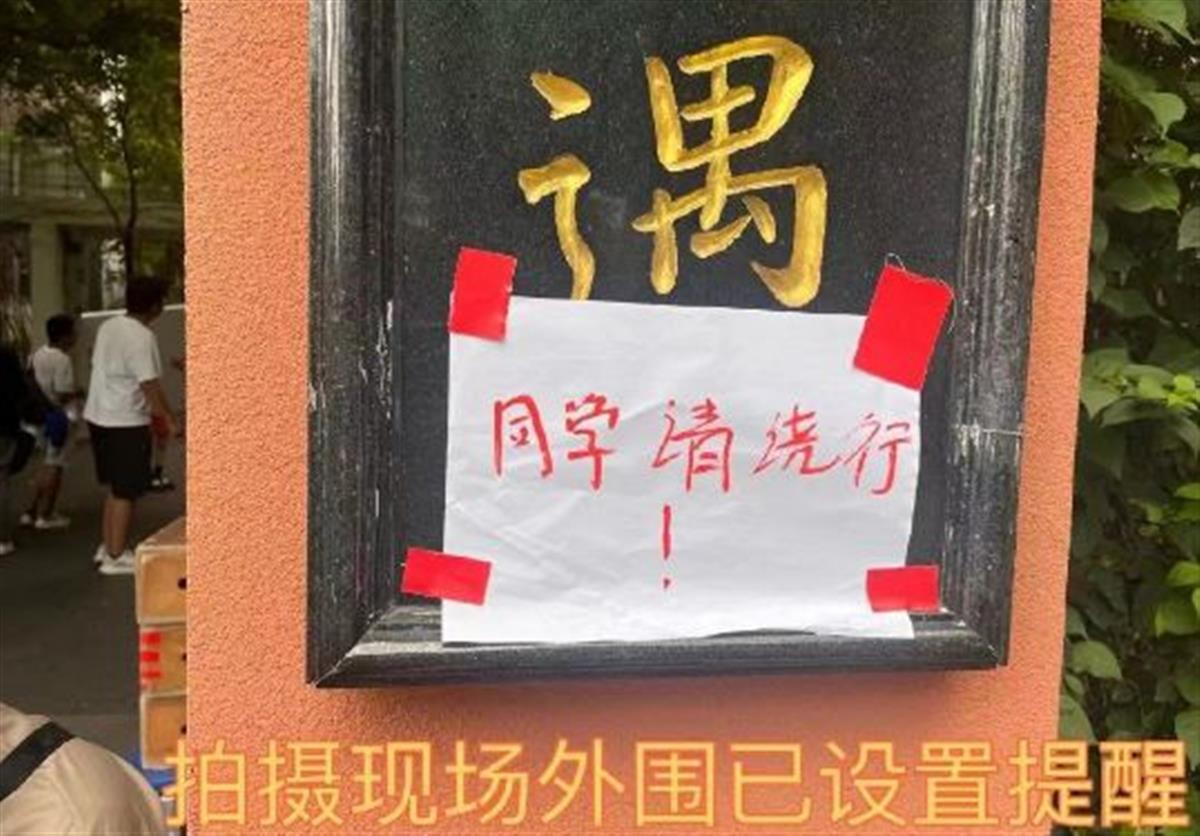 遇
同学 请绕行
!
拍摄现场外围已设置提醒